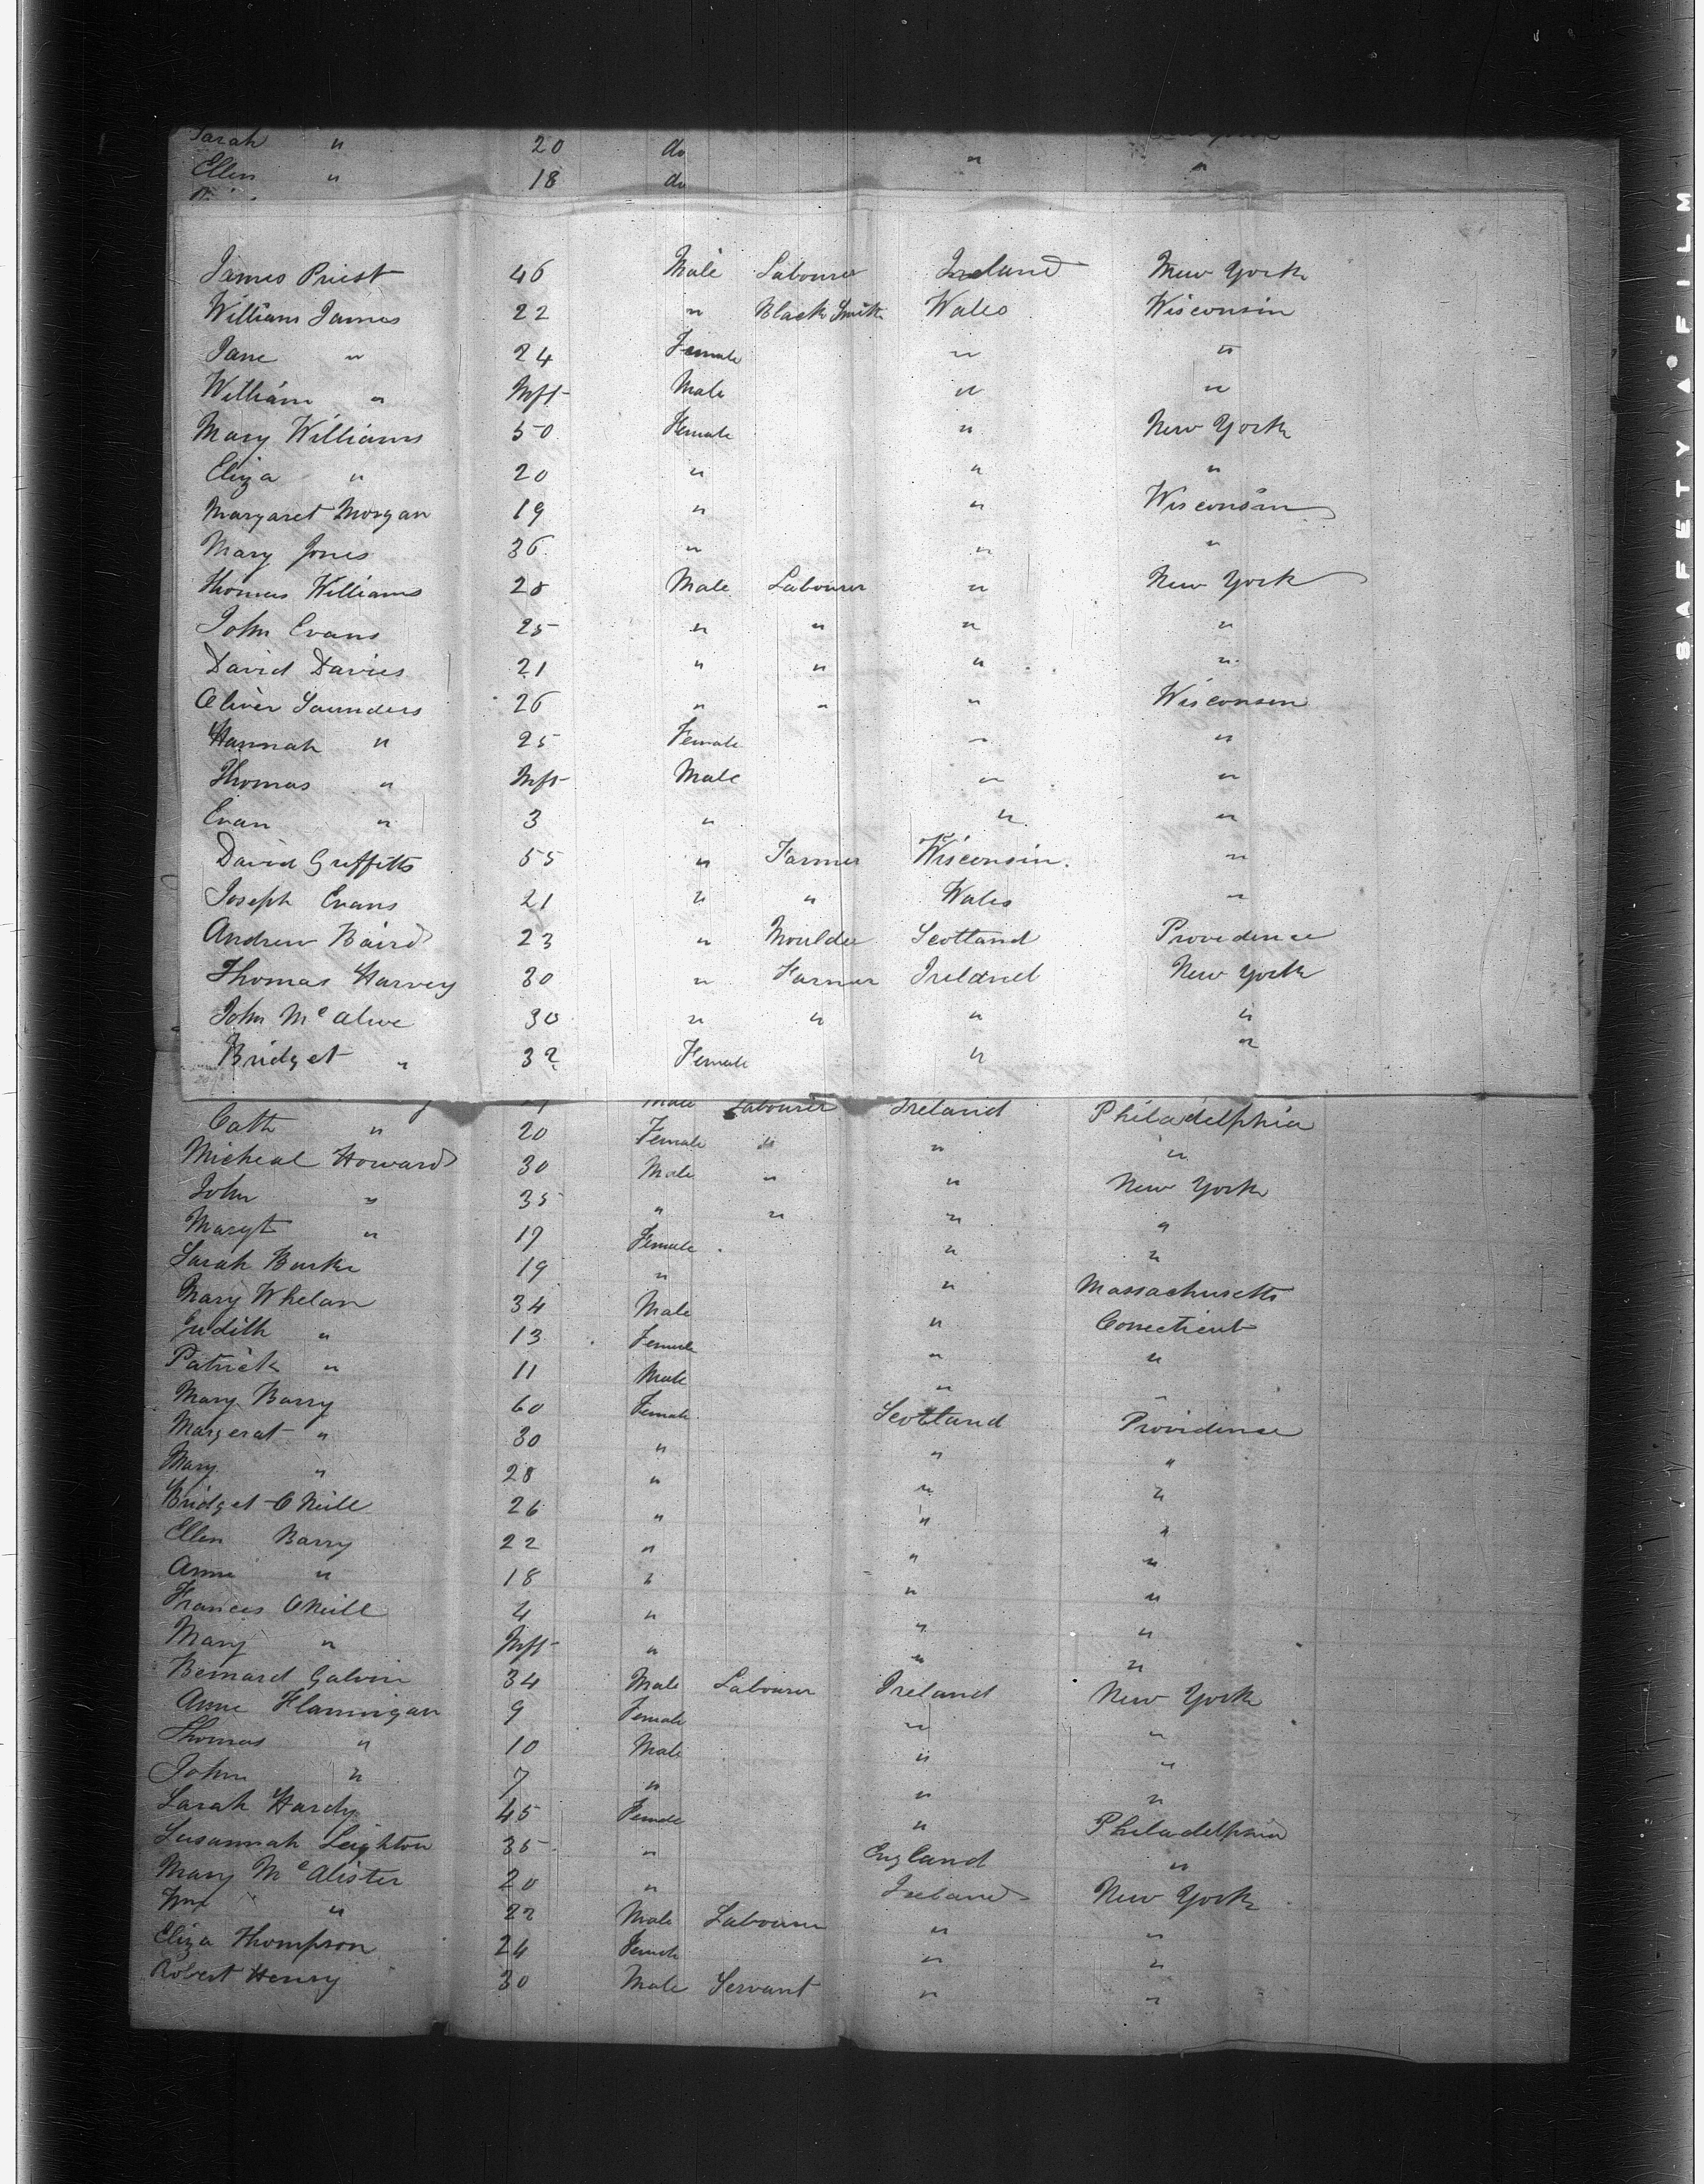 Sarah " 20 do
Ellen " 18 do " "
James Priest 46 Male Labourer Ireland New York
William James 22 " Black Smith Wales Wisconsin
Jane " 24 Female " "
William " Inft Male " "
Mary Williams 50 Female " New York
Eliza " 20 " " "
Margaret Morgan 19 " " Wisconsin
Mary Jones 36 " " "
Thomas Williams 28 Male Labourer " New York
John Evans 25 " " " "
David Davies 21 " " " "
Oliver Saunders 26 " " " Wisconsin
Hannah " 25 Female " "
Thomas " Inft Male " "
Evan " 3 " " "
David Griffitts 55 " Farmer Wisconsin. "
Joseph Evans 21 " " Wales "
Andrew Baird 23 " Moulder Scotland Providence
Thomas Harvey 30 " Farmer Ireland New York
John McAlive 30 " " " "
Bridget " 32 Female " "
Male Labourer Ireland Philadelphia
Cath " 20 Female " " "
Micheal Howard 30 Male " " New York
John " 35 " " " "
Margt " 17 Female " "
Sarah Burke 19 " " Massachusetts
Mary Whelan 34 Male " Conecticut
Judith " 13 Female " "
Patrick " 11 Male " "
Mary Barry 60 Female Scotland Providence
Margerat " 30 " " "
Mary " 28 " " "
Bridget O Neill 26 " " "
Ellen Barry 22 " " "
Anne " 18 " " "
Frances O Neill 4 " " "
Mary " Inft " " "
Bernard Galvin 34 Male Labourer Ireland New York
Anne Flannigan 9 Female " "
Thomas " 10 Male " "
John " 7 " " "
Sarah Hardy 45 Female " Philadelphia
Susannah Leighton 35 " England "
Mary McAlister 20 " Ireland New York
Wm " 22 Male Labourer " "
Eliza Thompson 24 Female " "
Robert Henry 30 Male Servant " "
SAFETY FILM